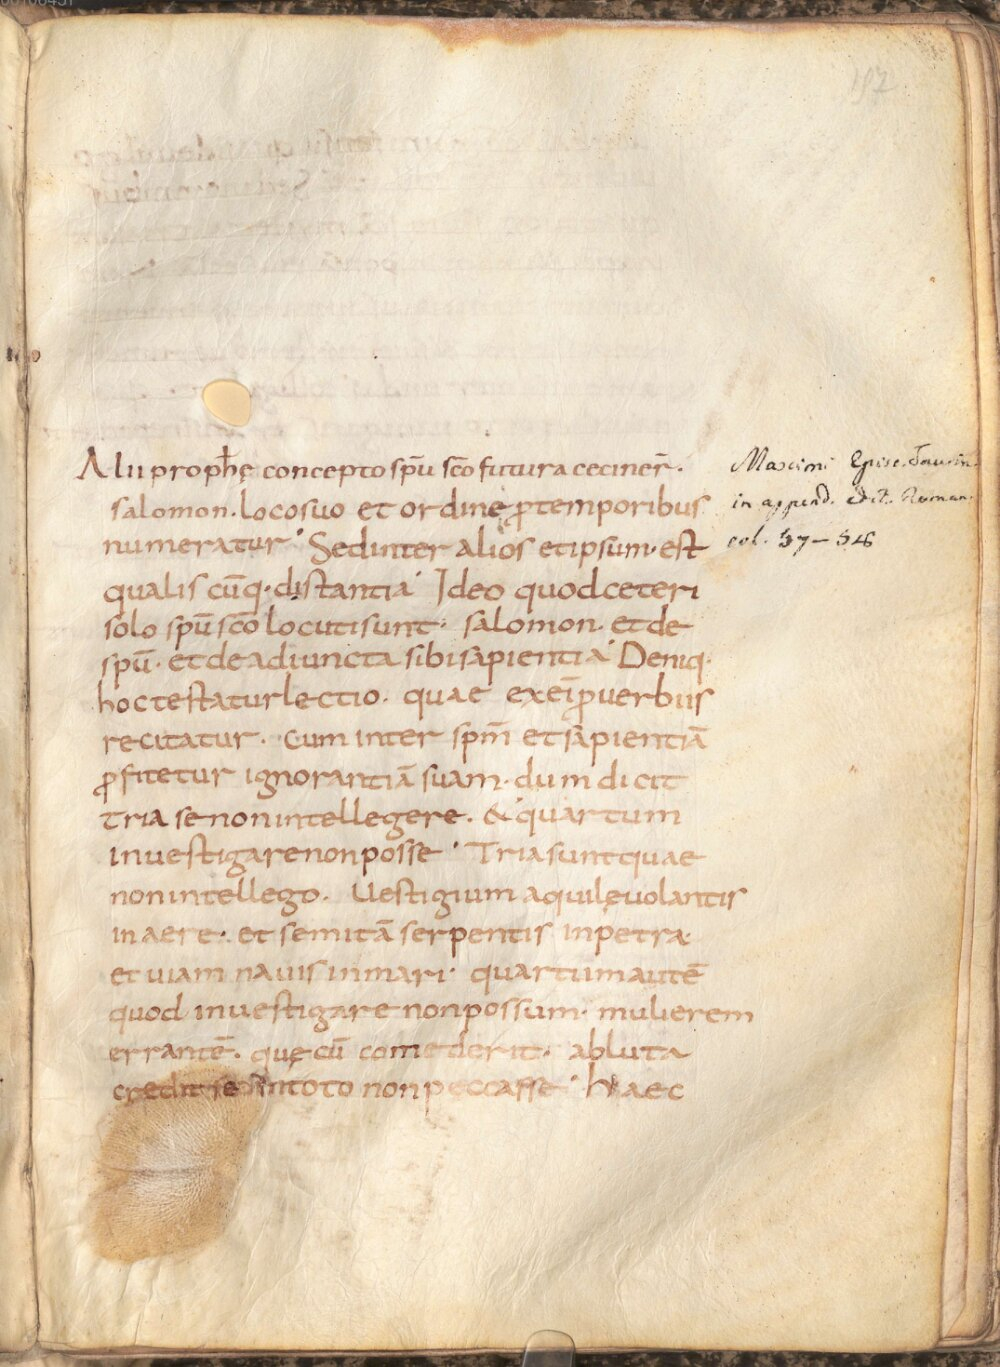 197
Alii prophę concepto spū sc̄o futura cecineR̄.
salomon. loco suo et ordine ꝓ temporibus
numeratur· Sed inter alios et ipsum· est
qualiscūq· distantia· Ideo quod ceteri
solo spū sc̄o locuti sunt· salomon· et de
spū· et de adiuncta sibi sapientia· Deniq·
hoc testatur lectio. quae ex ei ꝓuerbiis
recitatur. Cum inter spm̄ et sapientiā
ꝓfitetur ignorantiā suam· dum dicit
tria se non intellegere. & quartum
inuestigare non posse· Tria sunt quae
non intellego. Uestigium aquilę uolantis
in aere· et semitā serpentis in petra·
et uiam nauis in mari· quartum autē
quod inuestigare non possum· mulierem
errantē. quę cū comederit· abluta
credit se in toto non peccasse· haec
Maximi Episc. Taurin.
in append. edit. Roman.
col. 37-36